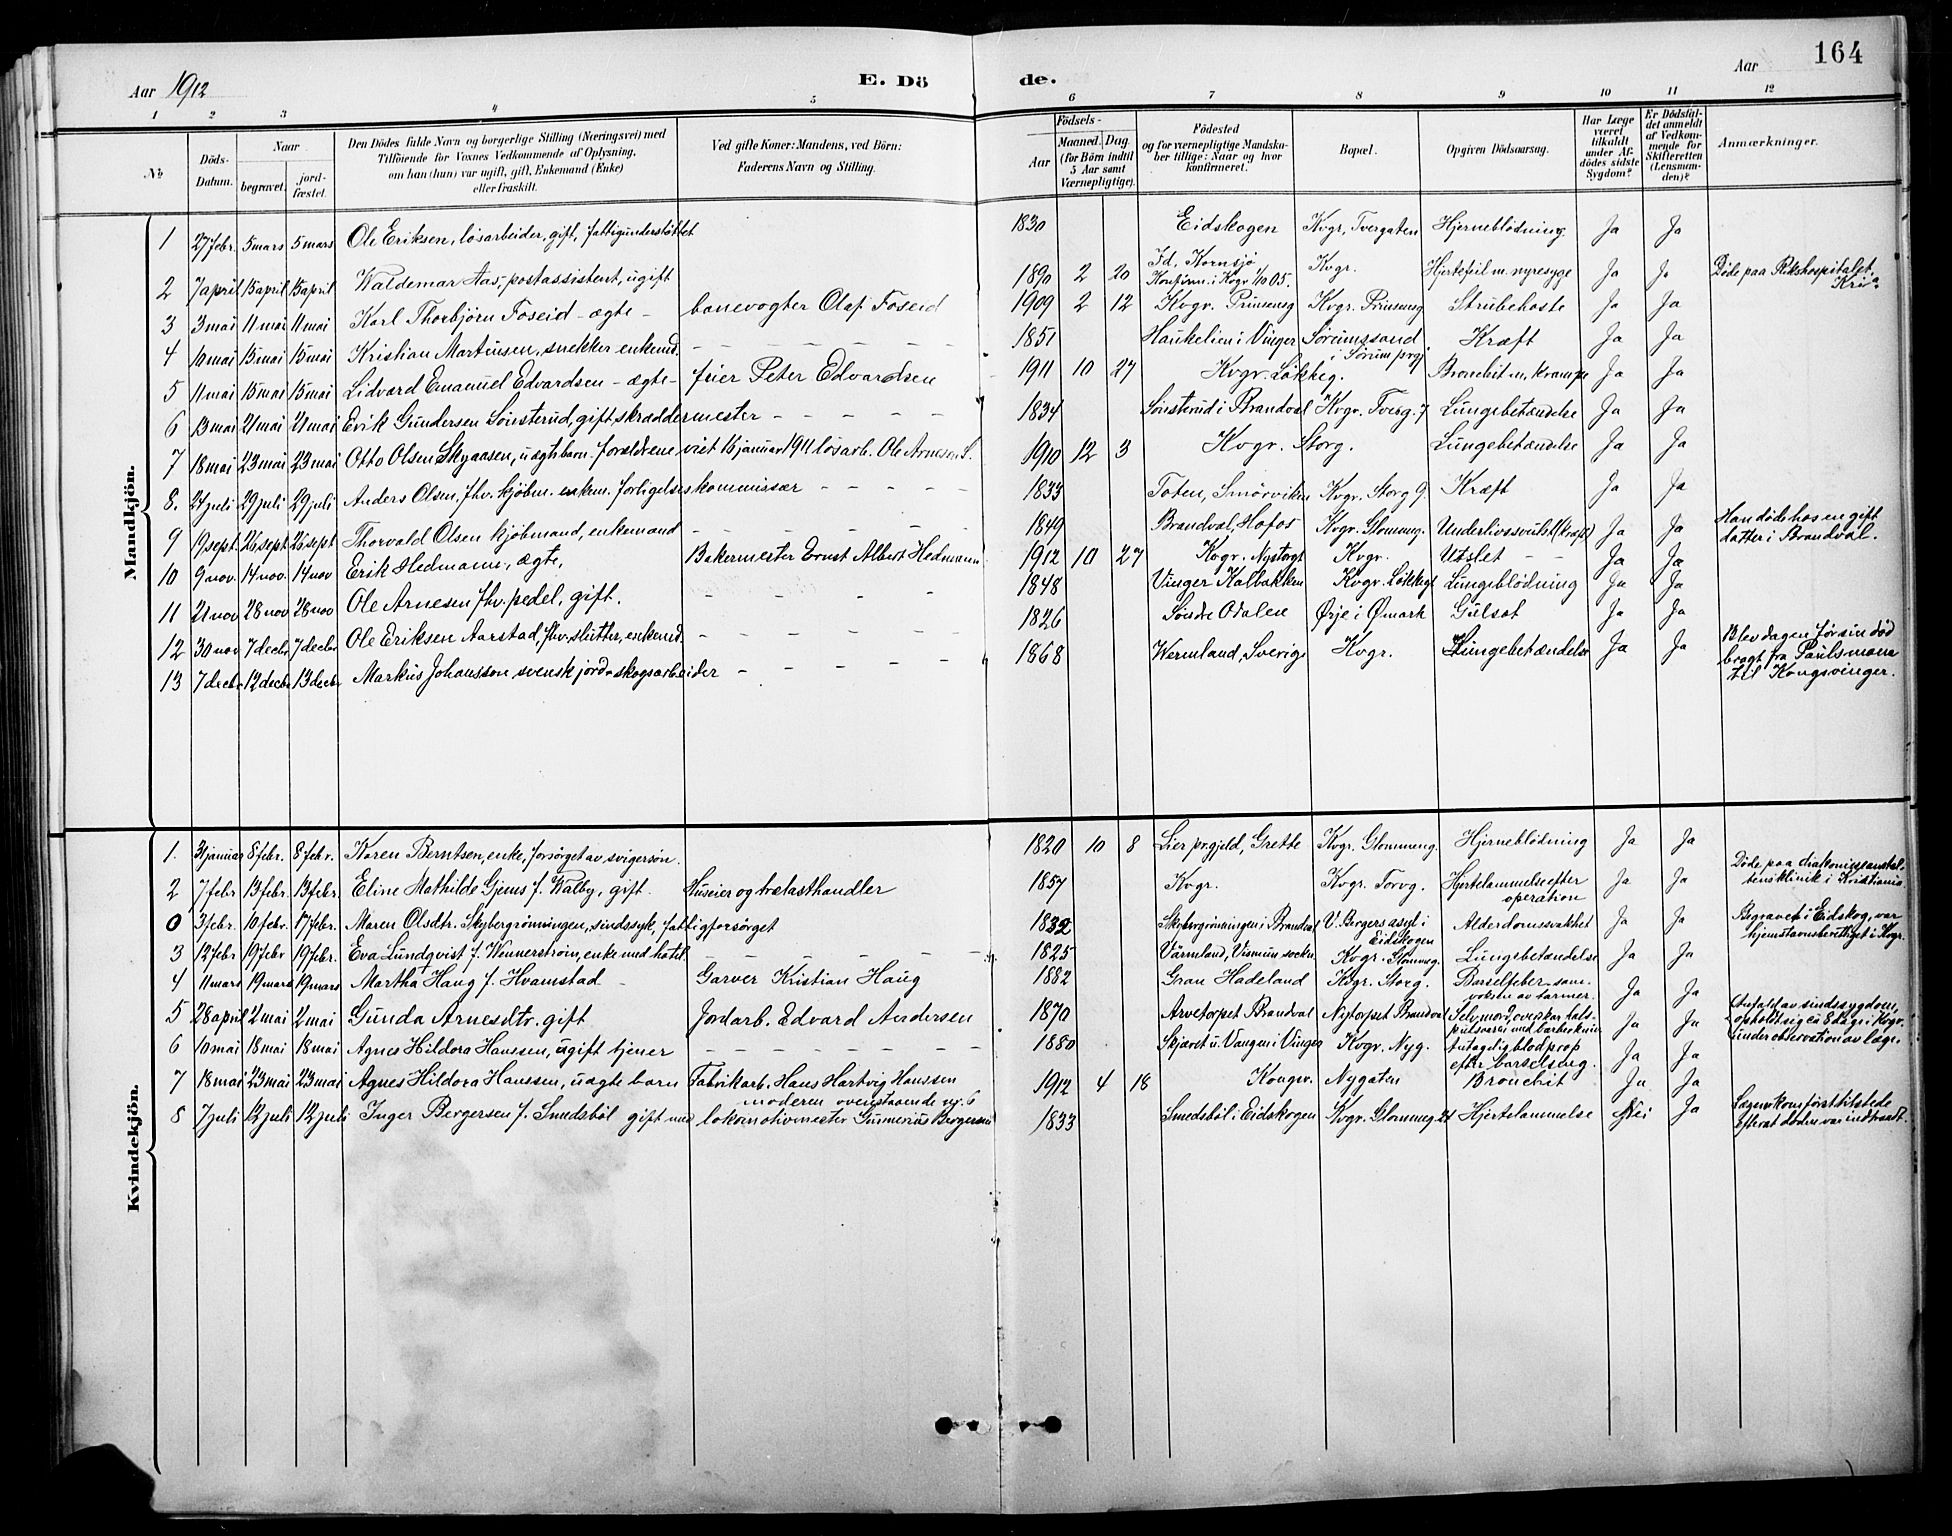 164
Aar 1912
E. Dö
de.
Aar
1 2 3 4 5 6 7 8 9 10 11 12
№
Döds-Datum.
Naar
begravet.
jord-fæstet.
Den Dödes fulde Navn og borgerlige Stilling (Næringsvei) med
Tilföiende for Voxnes Vedkommende af Oplysning,
om han (hun) var ugift, gift, Enkemand (Enke)
eller fraskilt.
Ved gifte Koner: Mandens, ved Börn:
Faderens Navn og Stilling.
Födsels-
Aar
Maaned.
Dag.
(for Börn indtil
5 Aar samt
Værnepligtige).
Födested
og for værnepligtige Mandskaber tillige: Naar og hvor
konfirmeret.
Bopæl.
Opgiven Dödsaarsag.
Har Læge
været
tilkaldt
under Afdödes sidste
Sygdom?
Er Dödsfaldet anmeldt
af Vedkommende for
Skifteretten
(Lensmanden)?
Anmærkninger.
Mandkjön.
1 27 febr. 5 mars 5 mars Ole Eriksen, løsarbeider, gift, fattigunderstøttet 1830 Eidskogen Kvgr, Tvergaten Hjerneblödning Ja Ja
2 7 april 15 april 15 april Waldemar Aas, postassistent, ugift 1890 2 20 Id, Kornsjø Konfirm. i Kvgr 1/10 05. Kvgr. Hjertefeil m. nyresyge Ja Ja Døde paa Rikshospitalet, Kria
3 3 mai 11 mai 11 mai Karl Thorbjörn Foseid - ægte - banevogter Olaf Foseid 1909 2 12 Kvgr. Prinsensg Kvgr. Prinsensg Strubehoste Ja Ja
4 10 mai 15 mai 15 mai Kristian Martinsen, snekker enkemd. - - - 1851 Haukelien i Vinger Sørumssand i Sørum prg. Kræft Ja Ja
5 11 mai 15 mai 15 mai Lidvard Emanuel Edvardsen - ægte - feier Peter Edvardsen 1911 10 27 Kvgr. Løkkeg. Bronchit m. krampe Ja Ja
6 13 mai 21 mai 21 mai Erik Gundersen Sønsterud, gift, skræddermester - - - 1834 Sønsterud i Brandval Kvgr. Tverg. 7 Lungebetændelse Ja Ja
7 18 mai 23 mai 23 mai Otto Olsen Skyaasen, uægte barn. forældrene viet 16 januar 1911 løsarb. Ole Arnesen S. 1910 12 3 Kvgr. Storg. Lungebetændelse Ja Ja
8. 24 juli 29 juli 29 juli Anders Olsen, fhv. kjøbm. enkem. forligelseskommissær - - - 1833 Toten, Smörviken Kvgr. Storg 9. Kræft Ja Ja
9 19 sept. 26 sept 26 sept Thorvald Olsen kjøbmand, enkemand - - - 1849 Brandval, Hofos Kvgr. Glommeng. Underlivssvulst (kræft) Ja Ja Han døde hos en gift datter i Brandval.
10 9 nov. 14 nov. 14 nov Erik Hedmann, ægte, Bakermester Ernst Albert Hedmann 1912 10 27 Kvgr. Nytorgt Kvgr. Utslet - - Ja Ja
11 21 nov 28 nov 28 nov Ole Arnesen fhv. pedel, gift. - - - 1848 Vinger Kalbakken Kvgr. Løkkegt Lungeblødning Ja Ja
12 30 nov 7 decbr 7 decbr Ole Eriksen Aarstad, fhv. slutter, enkemd. - - - 1826 Søndre Odalen Ørje i Ømark Gulsot Ja Ja
13 7 decbr 12 decbr 13 decbr Markus Johansson svensk jord & skogsarbeider - - - 1868 Wermland, Sverige Kvgr. Lungebetændelse Ja Ja Blev dagen før sin død bragt fra Paulsmoen til Kongsvinger.
Kvindekjön.
1. 31 januar 8 febr. 8 febr. Karen Berntsen, enke, forsørget av svigersøn. 1820 10 8 Lier prgjeld, Grette Kvgr. Glommeng. Hjerneblödning Ja Ja
2 7 febr 13 febr. 13 febr. Eline Mathilde Gjems f. Walby, gift. Huseier og trælasthandler 1857 Kvgr. Kvgr. Torvg. Hjertelammelse efter operation Ja Ja Døde paa diakonisseanstaltens klinik i Kristiania
0 3 febr. 10 febr. 17 febr. Maren Olsdtr. Skybergrønningen, sindssyk, fattigforsørget 1832 Skybergrønningen i Brandval V. Bergers asyl i Eidskogen Alderdomssvakhet Ja Ja Begravet i Eidskog, var hjemstavnsberettiget i Kvgr.
3 12 febr 19 febr 19 febr. Eva Lundqvist f. Wennerström, enke med hotel - - - 1825 Värmland, Visnum socken Kvgr. Glommeng. Lungebetændelse Ja Ja
4 11 mars 19 mars 19 mars Martha Haug f. Hvamstad Garver Kristian Haug 1882 Gran Hadeland Kvgr. Storg. Barselfeber - sam- vokster av tarmer. Ja Ja
5 28 april 2 mai 2 mai Gunda Arnesdtr. gift Jordarb. Edvard Andersen 1870 Arvetorpet Brandval Nytorpet Brandval Selvmord, overskar hals- pulsaaren med barberkniv Ja Ja Anfald av sindssygdom, opholdt sig ca 8 dage i Kvgr. under observation av læge.
6 10 mai 18 mai 18 mai Agnes Hildora Hanssen, ugift tjener - - - 1880 Skjæret u. Vangen i Vinger Kvgr. Nyg. Antagelig blodprop efter barselseng. Ja Ja
7 18 mai 23 mai 23 mai Agnes Hildora Hanssen, uægte barn Fabrikarb. Hans Hartvig Hanssen moderen ovenstaaende nr. 6 1912 4 18 Kongsv. Nygaten Bronchit Ja Ja
8 7 juli 12 juli 12 juli Inger Bergersen f. Smedsböl gift med lokomotivmester Gunnerius Bergersen 1833 Smedsböl i Eidskogen Kvgr. Glommeng. 21 Hjertelammelse Nei Ja Lægen kom först tilstede efterat döden var indtraadt.